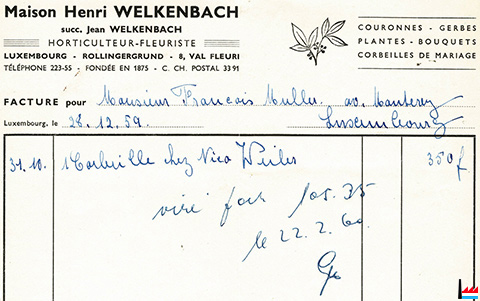 Maison Henri WELKENBACH
succ. Jean WELKENBACH
HORTICULTEUR-FLEURISTE
LUXEMBOURG - ROLLINGERGRUND - 8, VAL FLEURI
TÉLÉPHONE 223-55 - FONDÉE EN 1875 - C. CH. POSTAL 33 91
COURONNES - GERBES
PLANTES - BOUQUETS
CORBEILLES DE MARIAGE
FACTURE pour Monsieur Francois Muller av. Monterey
Luxembourg, le 28.12.59. Luxembourg
31.10. 1 Corbeille chez Nico Weiler 350 f
viré par 105.35
le 22.2.60